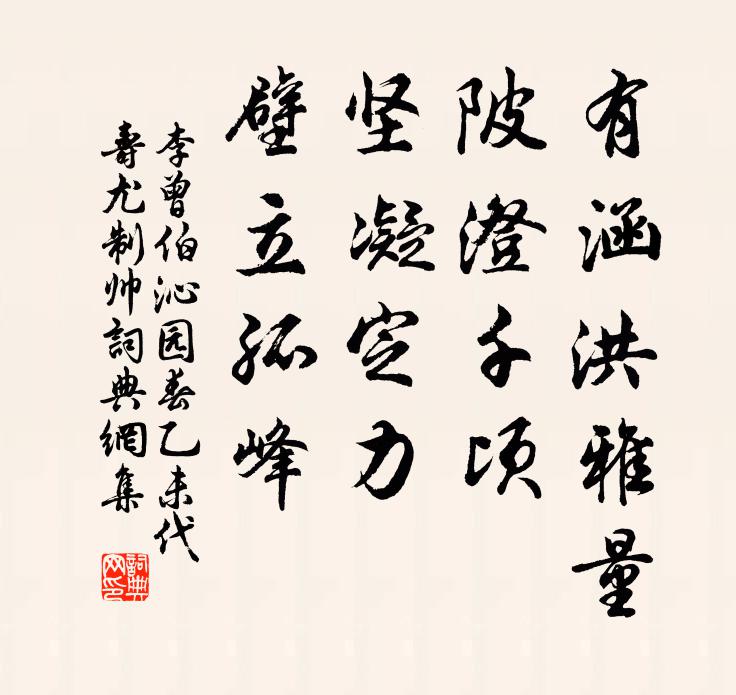 有涵洪雅量
陂澄千顷
坚凝定力
壁立孤峰
李曾伯沁园春乙未代
寿尤制帅詞典網集
詞典网印